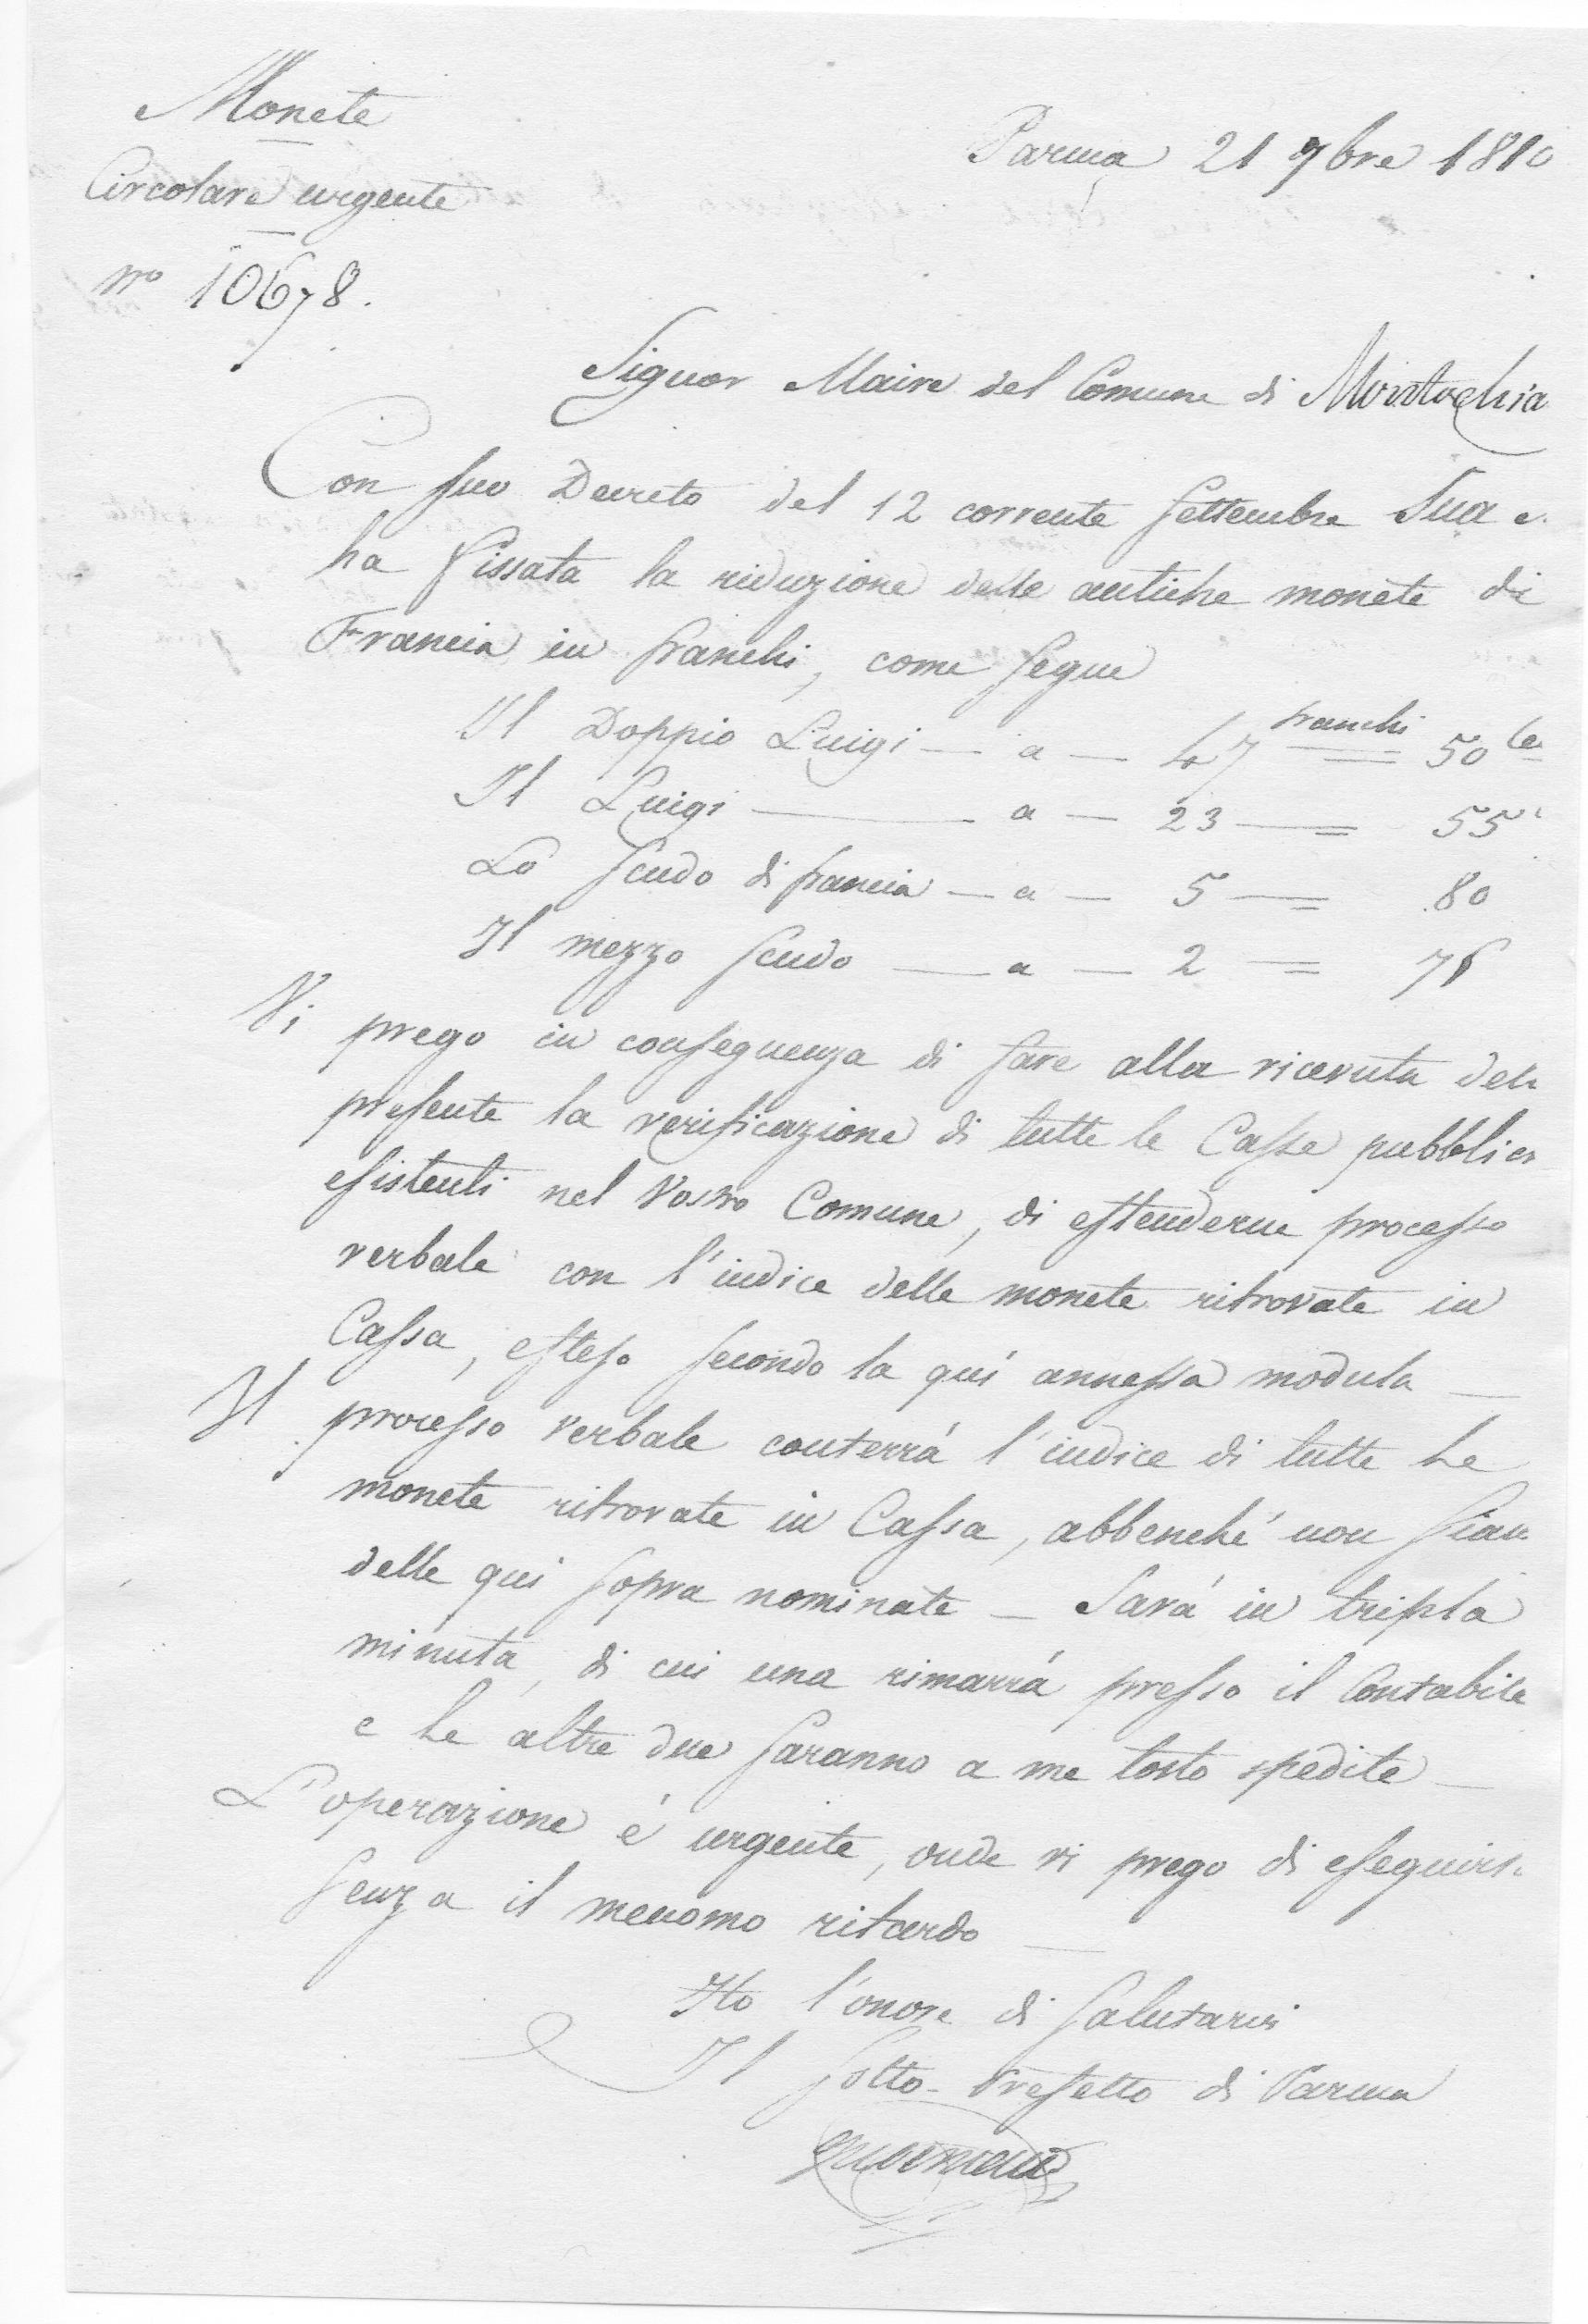 Monete
Parma 21 7bre 1810
Circolare urgente
No 10678.
Signor Maire del Comune di Montechia
Con suo Decreto del 12 corrente Settembre Sua
ha fissata la riduzione delle antiche monete di
Francia in franchi, come segue
Il Doppio Luigi — a — 47 franchi = 50 Ce
Il Luigi — a — 23 — = 55
Lo scudo di francia — a — 5 — = 80
Il mezzo scudo — a — 2 — = 75
Vi prego in conseguenza di fare alla ricevuta della
presente la verificazione di tutte le Casse pubblice
esistenti nel Vostro Comune, di estenderne processo
verbale con l'indice delle monete ritrovate in
Cassa, esteso secondo la quì annessa modula —
Il processo verbale conterrà l'indice di tutte le
monete ritrovate in Cassa, abbenché non sian
delle qui sopra nominate — Sarà in tripla
minuta, di cui una rimarrà presso il Contabile
e le altre due saranno a me tosto spedite —
L'operazione é urgente, onde vi prego di eseguirla
senza il menomo ritardo —
Ho l'onore di salutarvi
Il Sotto-Prefetto di Parma